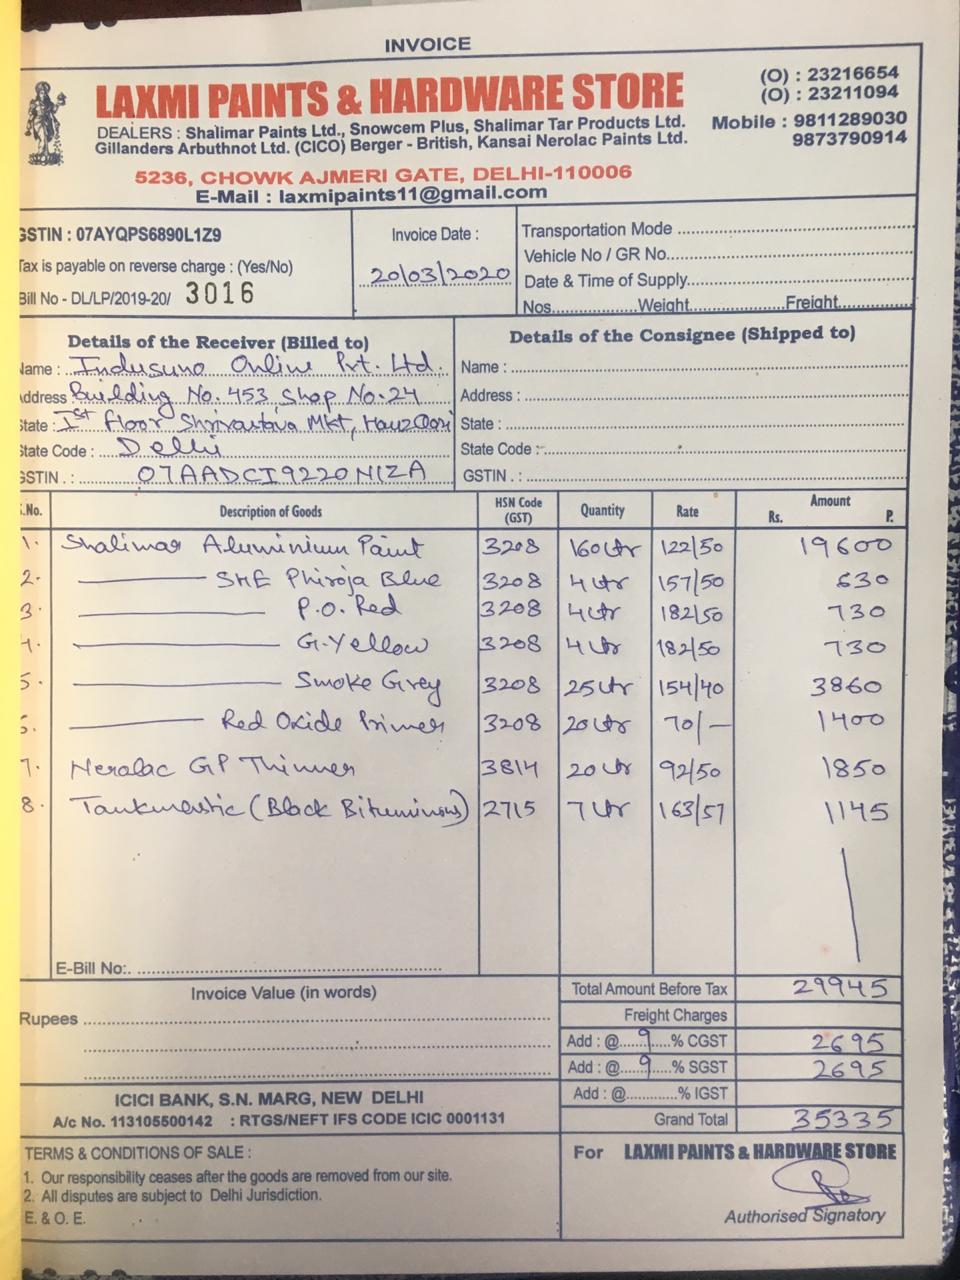 INVOICE
LAXMI PAINTS & HARDWARE STORE
(O) : 23216654
(O) : 23211094
Mobile : 9811289030
9873790914
DEALERS : Shalimar Paints Ltd., Snowcem Plus, Shalimar Tar Products Ltd.
Gillanders Arbuthnot Ltd. (CICO) Berger - British, Kansai Nerolac Paints Ltd.
5236, CHOWK AJMERI GATE, DELHI-110006
E-Mail : laxmipaints11@gmail.com
GSTIN : 07AYQPS6890L1Z9
Tax is payable on reverse charge : (Yes/No)
Bill No - DL/LP/2019-20/ 3016
Invoice Date :
20/03/2020
Transportation Mode
Vehicle No / GR No.
Date & Time of Supply
Nos. Weight Freight
Details of the Receiver (Billed to)
Name : Indusuno Online Pvt. Ltd.
Address Building No. 453, Shop No-24
State : Ist floor Shrivastava Mkt, Hauz Qazi
State Code : Delhi
GSTIN . : 07AADCI9220N1ZA
Details of the Consignee (Shipped to)
Name :
Address :
State :
State Code :
GSTIN . :
S.No. Description of Goods HSN Code (GST) Quantity Rate Amount Rs. P.
1. Shalimar Aluminium Paint 3208 160 Ltr 122/50 19600
2. SHE Phiroja Blue 3208 4 Ltr 157/50 630
3. P.O. Red 3208 4 Ltr 182/50 730
4. G.Yellow 3208 4 Ltr 182/50 730
5. Smoke Grey 3208 25 Ltr 154/40 3860
6. Red Oxide Primer 3208 20 Ltr 70/- 1400
7. Neralac GP Thinner 3814 20 Ltr 92/50 1850
8. Tankmastic (Black Bituminous) 2715 7 Ltr 163/57 1145
E-Bill No:.
Invoice Value (in words)
Rupees
Total Amount Before Tax 29945
Freight Charges
Add : @ 9 % CGST 2695
Add : @ 9 % SGST 2695
Add : @ % IGST
Grand Total 35335
ICICI BANK, S.N. MARG, NEW DELHI
A/c No. 113105500142 : RTGS/NEFT IFS CODE ICIC 0001131
TERMS & CONDITIONS OF SALE :
1. Our responsibility ceases after the goods are removed from our site.
2. All disputes are subject to Delhi Jurisdiction.
E. & O. E.
For LAXMI PAINTS & HARDWARE STORE
Authorised Signatory